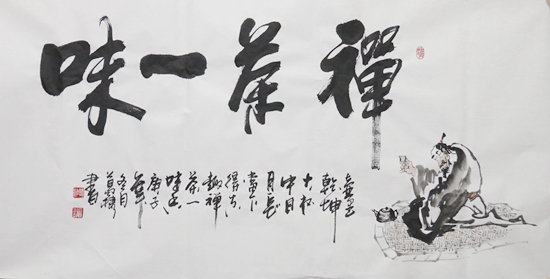 禪茶一味
壺里
乾坤
大杯
中日
月長
當下
得
趣禅
茶一
味
庚子
冬月
書